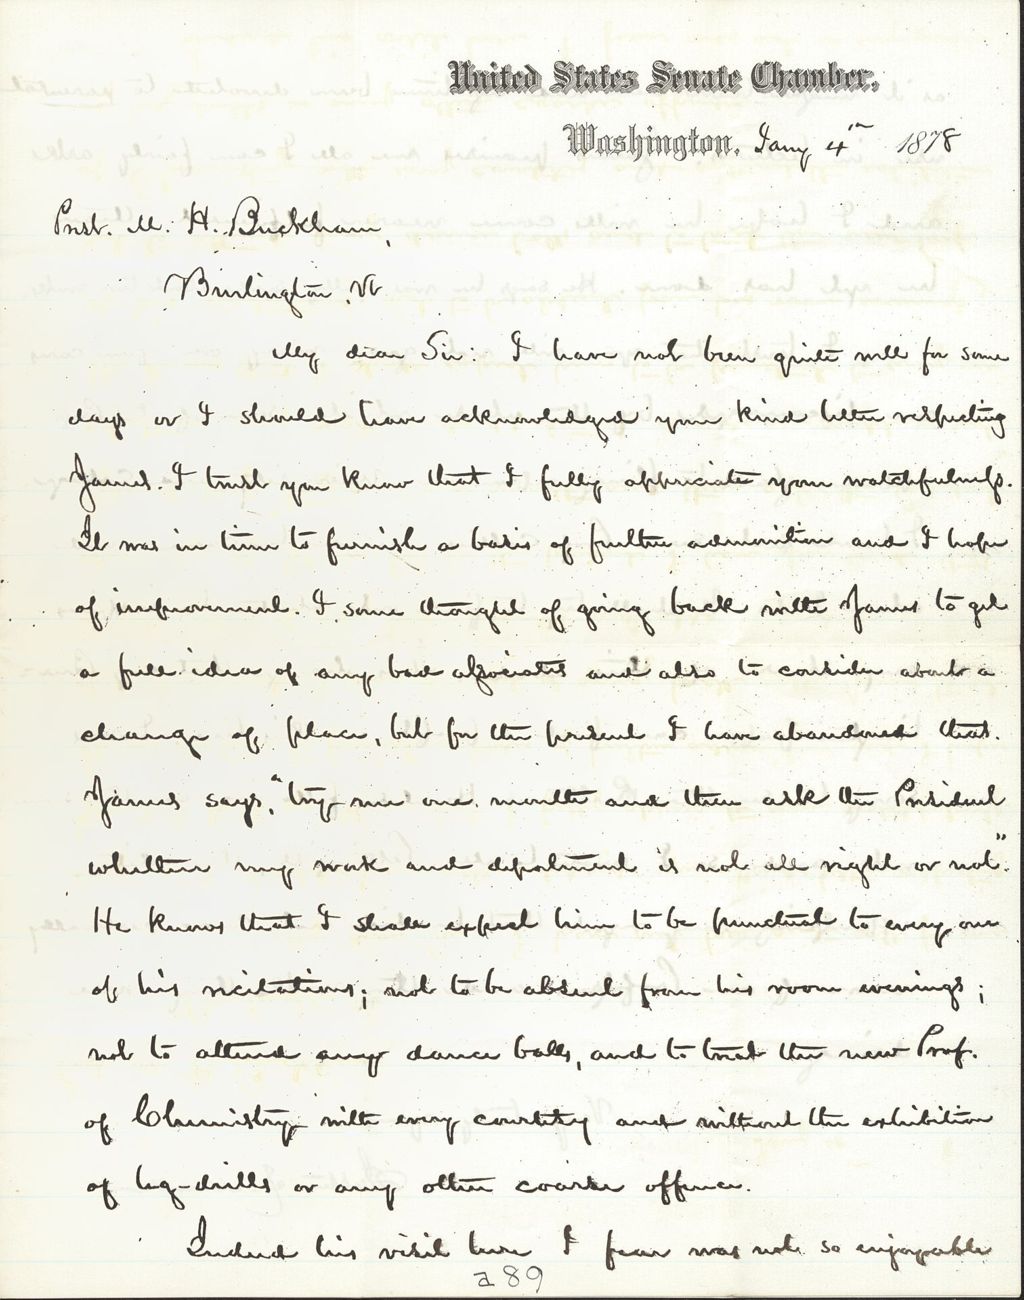 United States Senate Chamber.
Washington, Jany 4th 1878
Prest. M. H. Buckham,
Burlington, Vt
My dear Sir: I have not been quite well for some
days or I should have acknowledged your kind letter respecting
James. I trust you know that I fully appreciate your watchfulness.
It was in time to furnish a basis of further admonition and I hope
of improvement. I some thought of going back with James to get
a full idea of any bad associates and also to consider about a
change of place, but for the present I have abandoned that.
James says, "try me one month and then ask the President
whether my work and deportment is not all right or not".
He knows that I shall expect him to be punctual to every one
of his recitations; not to be absent from his room evenings;
not to attend any dance balls, and to treat the new Prof.
of Chemistry with every courtesy and without the exhibition
of leg-drills or any other coarse offence.
Indeed his visit here I fear was not so enjoyable
a89